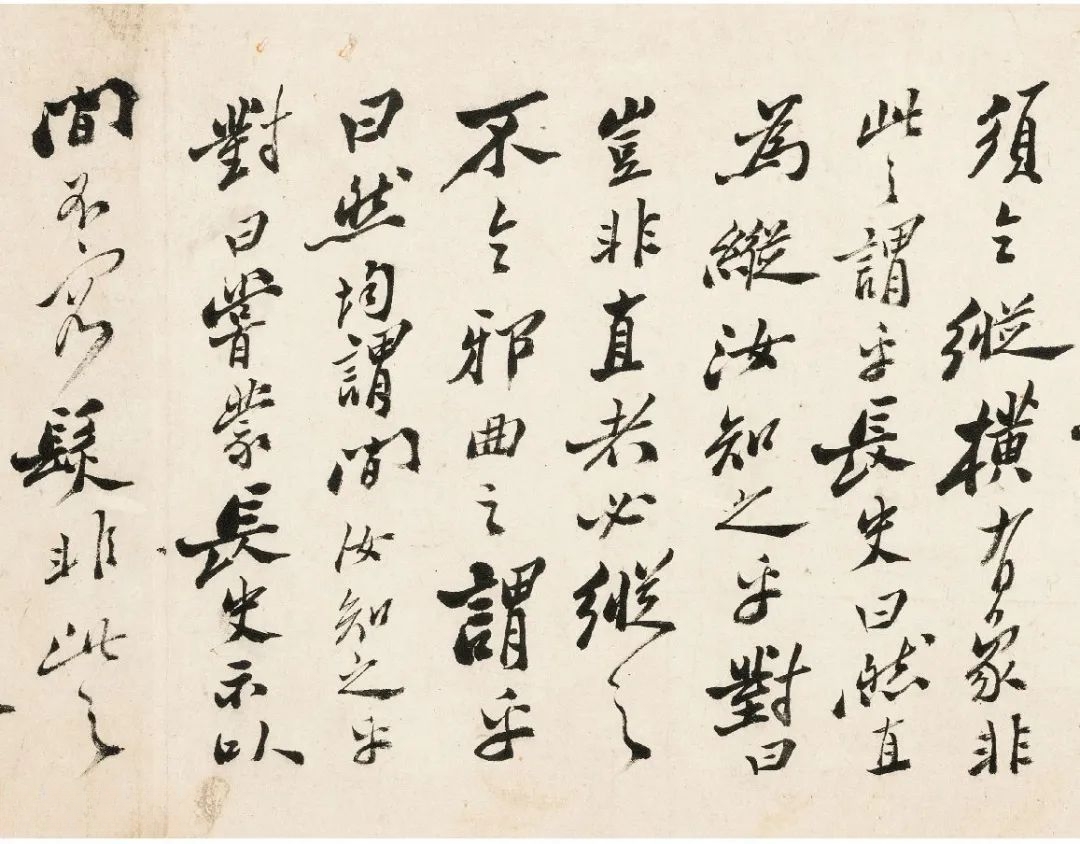 須令縱橫有象非
此之謂乎長史曰然直
為縱汝知之乎對曰
豈非直者必縱之
不令邪曲之謂乎
曰然均謂間汝知之乎
對曰嘗蒙長史示以
間不容髮非此之